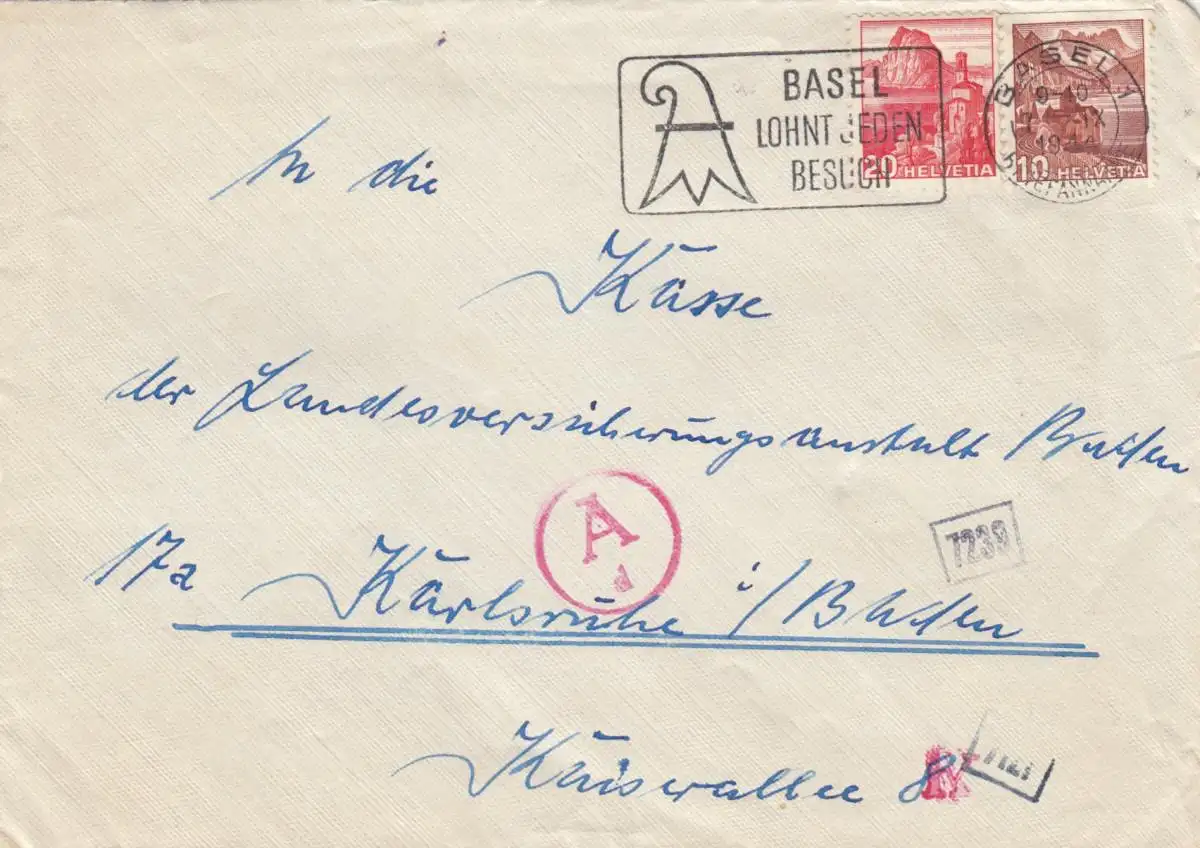 BASEL
LOHNT JEDEN
BESUCH
20 HELVETIA
10 HELVETIA
BASEL 1
9-10
IX
1944
An die
Kasse
der Landesversicherungsanstalt Baden
A
a
7239
17a Karlsruhe i/Baden
Kaiserallee 8